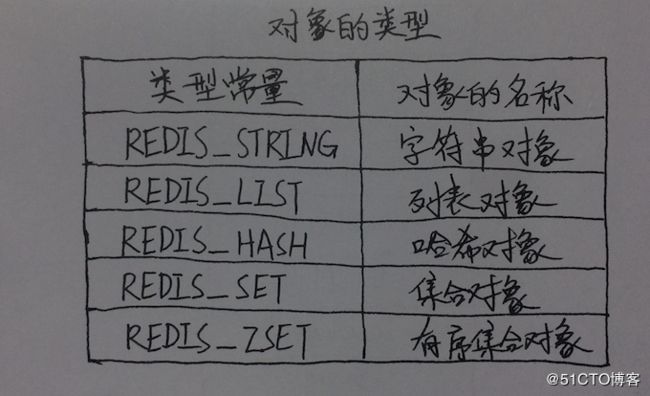 对象的类型
类型常量 对象的名称
REDIS_STRING 字符串对象
REDIS_LIST 列表对象
REDIS_HASH 哈希对象
REDIS_SET 集合对象
REDIS_ZSET 有序集合对象
@51CTO博客